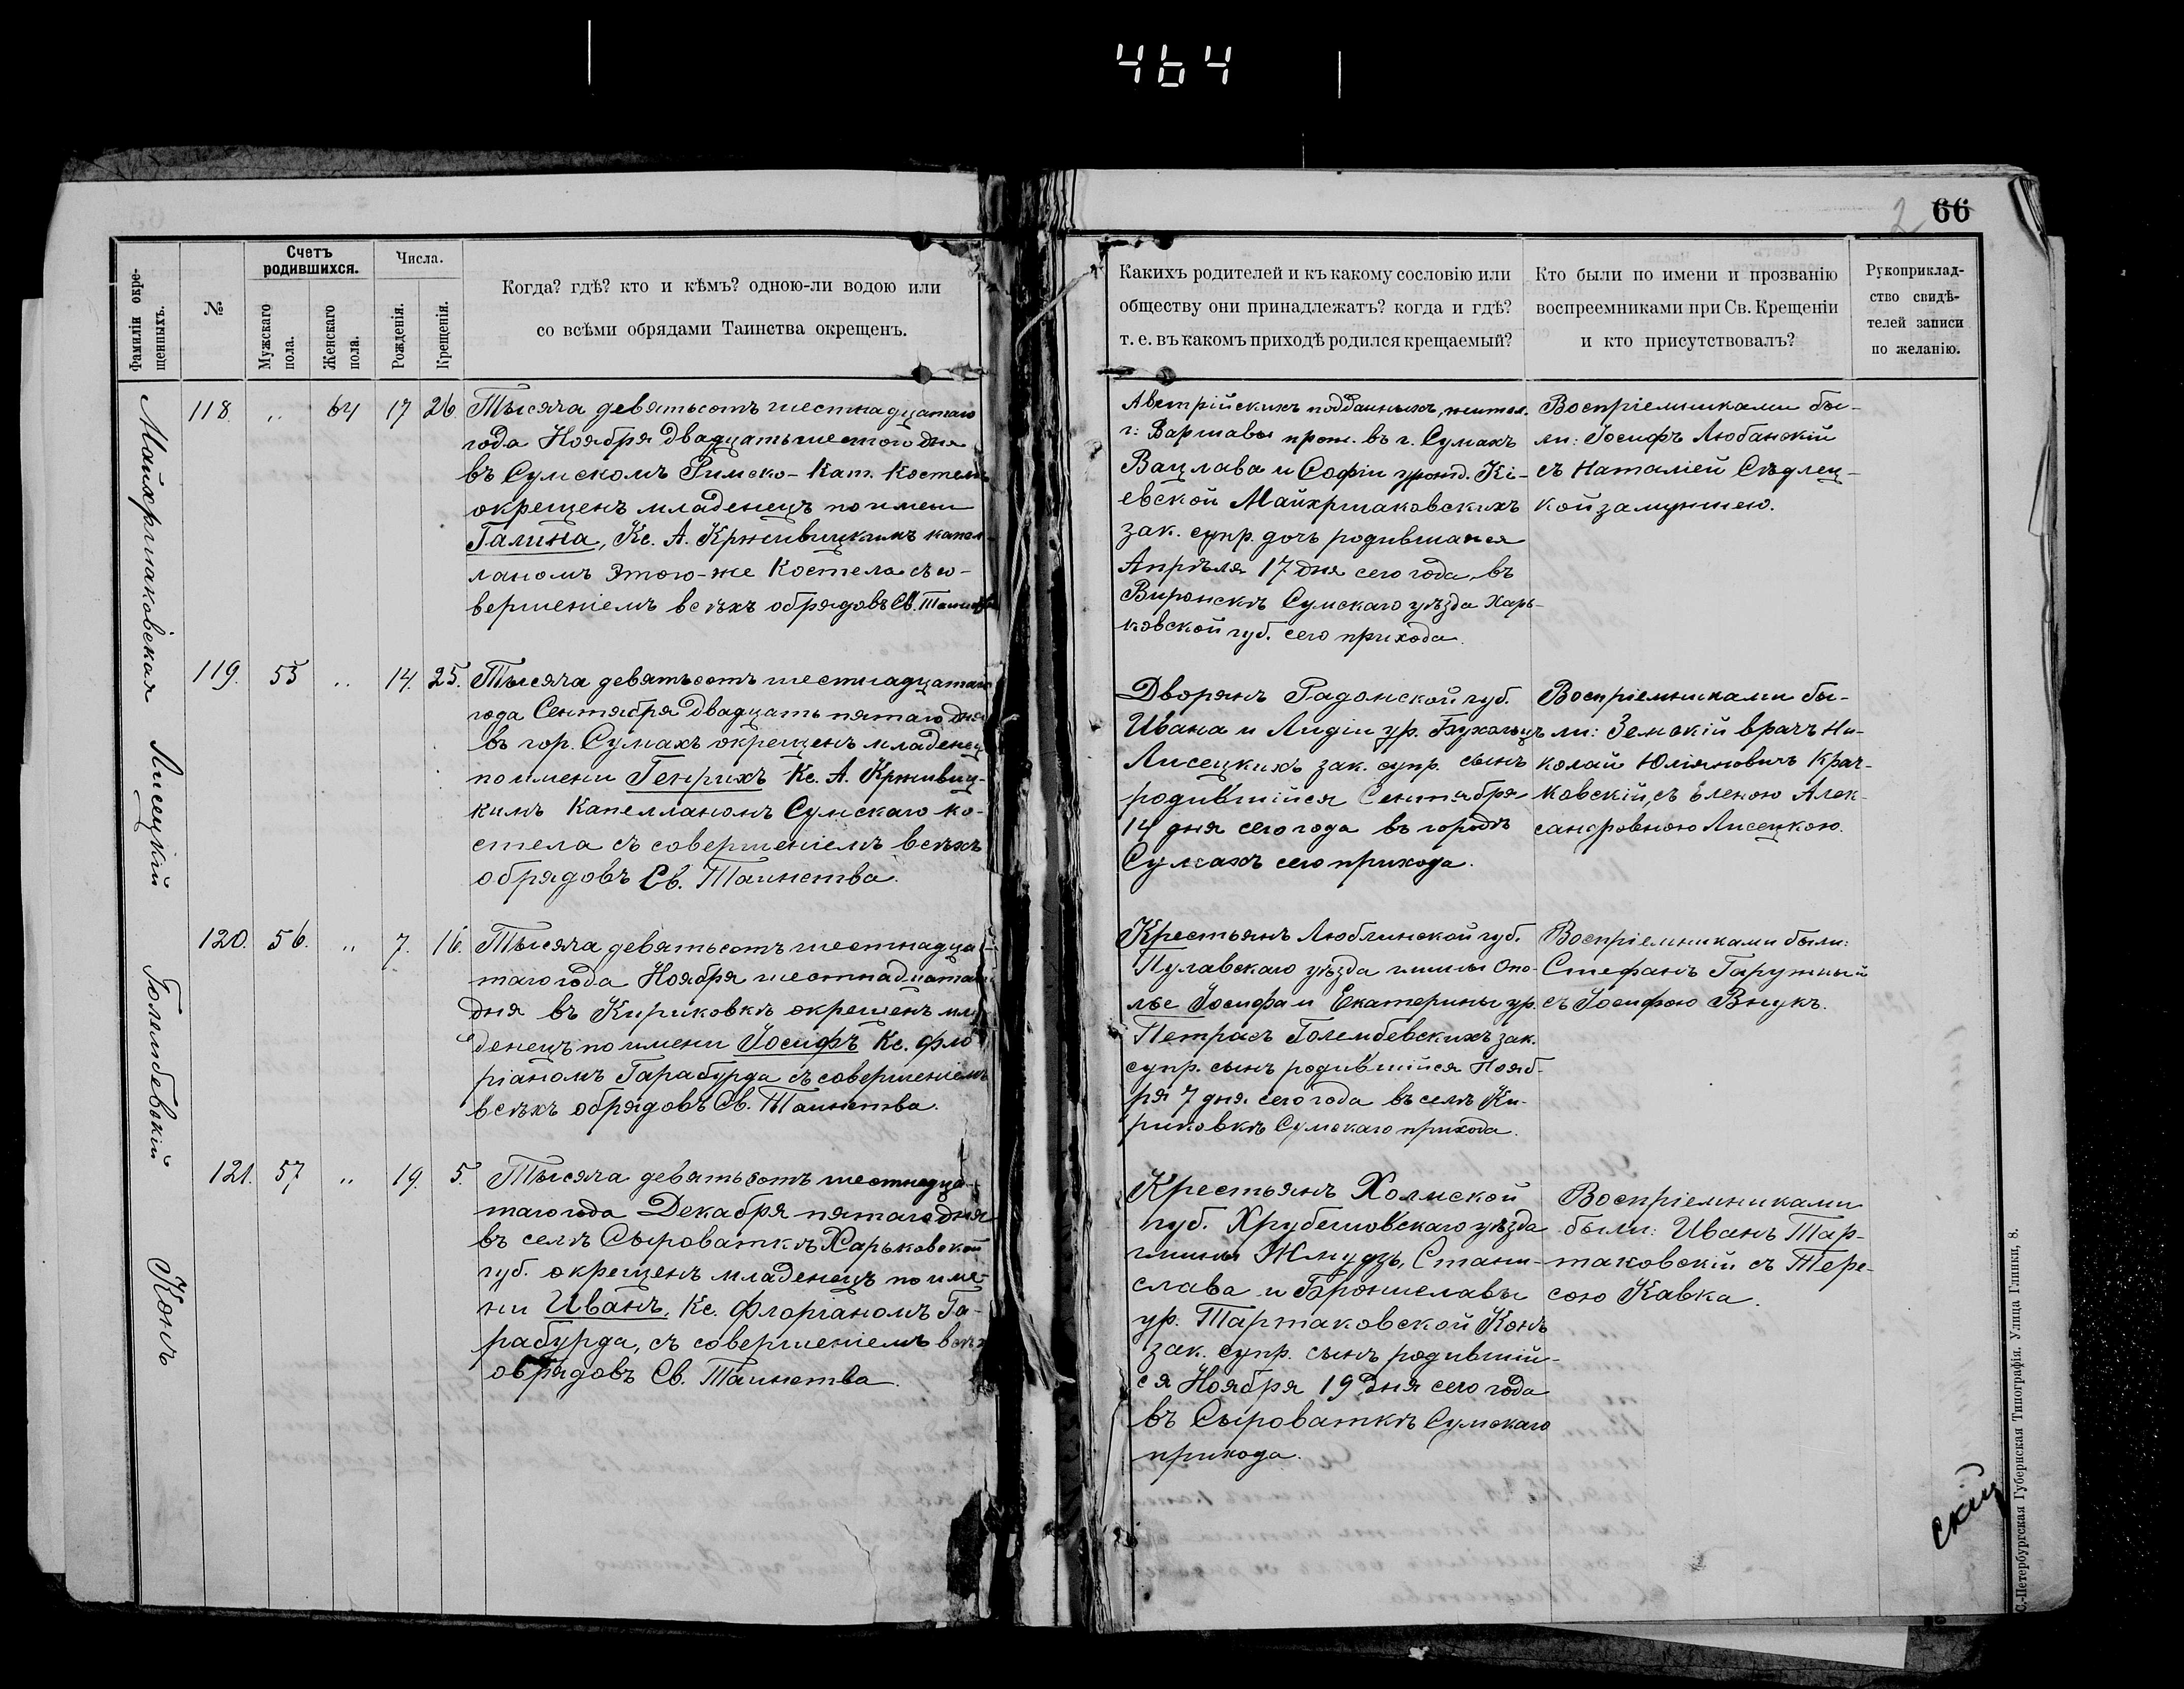 464
2 66
Фамиліи окре-
щенныхъ.
№
Счетъ
родившихся.
Мужскаго
пола.
Женскаго
пола.
Числа.
Рожденія.
Крещенія.
Когда? гдѣ? кто и кѣмъ? одною-ли водою или
со всѣми обрядами Таинства окрещенъ.
Какихъ родителей и къ какому сословію или
обществу они принадлежатъ? когда и гдѣ?
т. е. въ какомъ приходѣ родился крещаемый?
Кто были по имени и прозванію
воспреемниками при Св. Крещеніи
и кто присутствовалъ?
Рукоприклад-
ство свидѣ-
телей записи
по желанію.
Майхршаковская
118. " 64 17 26.
Тысяча девятьсотъ шестнадцатаго
года Ноября двадцать шестого дня
въ Сумскомъ Римско-Кат. Костелѣ
окрещенъ младенецъ по имени
Галина, Кс. А. Крживицкимъ капел-
ланомъ Этого-же Костела съ со-
вершеніемъ всѣхъ обрядовъ Св. Таинства
Австрійскихъ подданныхъ, жител.
г. Варшавы прож. въ г. Сумахъ
Вацлава и Софіи урожд. Кі-
евской Майхршаковскихъ
зак. супр. дочь родившаяся
Апрѣля 17 дня сего года, въ
Сумскаго уѣзда Харь-
ковской губ. сего прихода.
Воспріемниками бы-
ли: Іосифъ Любанскій
съ Наталіей Сѣдлец-
кой замужнею.
Лисецкій
119. 55 " 14. 25.
Тысяча девятьсотъ шестнадцатаго
года Сентября двадцать пятаго дня
въ гор. Сумахъ окрещенъ младенец
по имени Генрихъ Кс. А. Крживиц-
кимъ Капелланомъ Сумскаго ко-
стела съ совершеніемъ всѣхъ
обрядовъ Св. Таинства.
Дворянъ Радомской губ.
Ивана и Лидіи ур. Бухольцъ
Лисецкихъ зак. супр. сынъ
родившійся Сентября
14 дня сего года въ городѣ
Сумахъ сего прихода.
Воспріемниками бы-
ли: Земскій врачъ Ни-
колай Юліановичъ Крач-
ковскій, съ Еленою Алек-
сандровною Лисецкою.
Голембевскій
120. 56. " 7. 16.
Тысяча девятьсотъ шестнадца-
таго года Ноября шестнадцатаго
дня въ Кириковкѣ окрещенъ мла
денецъ по имени Іосифъ Кс. Фло
ріаномъ Гарабурда съ совершеніемъ
всѣхъ обрядовъ Св. Таинства.
Крестьянъ Люблинской губ.
Пулавскаго уѣзда гмины Опо-
лѣе Іосифа и Екатерины ур.
Петрасъ Голембевскихъ зак.
супр. сынъ родившійся Нояб-
ря 7 дня сего года въ селѣ Ки-
риковкѣ Сумскаго прихода.
Воспріемниками были:
Стефанъ Гаружный
съ Іосифою Внукъ.
Конъ
121. 57 " 19. 5.
Тысяча девятьсотъ шестнадца-
таго года Декабря пятаго дня
въ селѣ Сыроваткѣ Харьковской
губ. окрещенъ младенецъ по име-
ни Иванъ, Кс. Флоріаномъ Га-
рабурда, съ совершеніемъ всѣхъ
обрядовъ Св. Таинства.
Крестьянъ Холмской
губ. Хрубешовскаго уѣзда
гмины Жмудзь, Стани-
слава и Брониславы
ур. Тартаковской Конъ
зак. супр. сынъ родившій-
ся Ноября 19 дня сего года
въ Сыроваткѣ Сумскаго
прихода.
Воспріемниками
были: Иванъ Тар-
таковскій съ Тере-
сою Кавка.
скій
С.-Петербургская Губернская Типографія. Улица Глинки, 8.